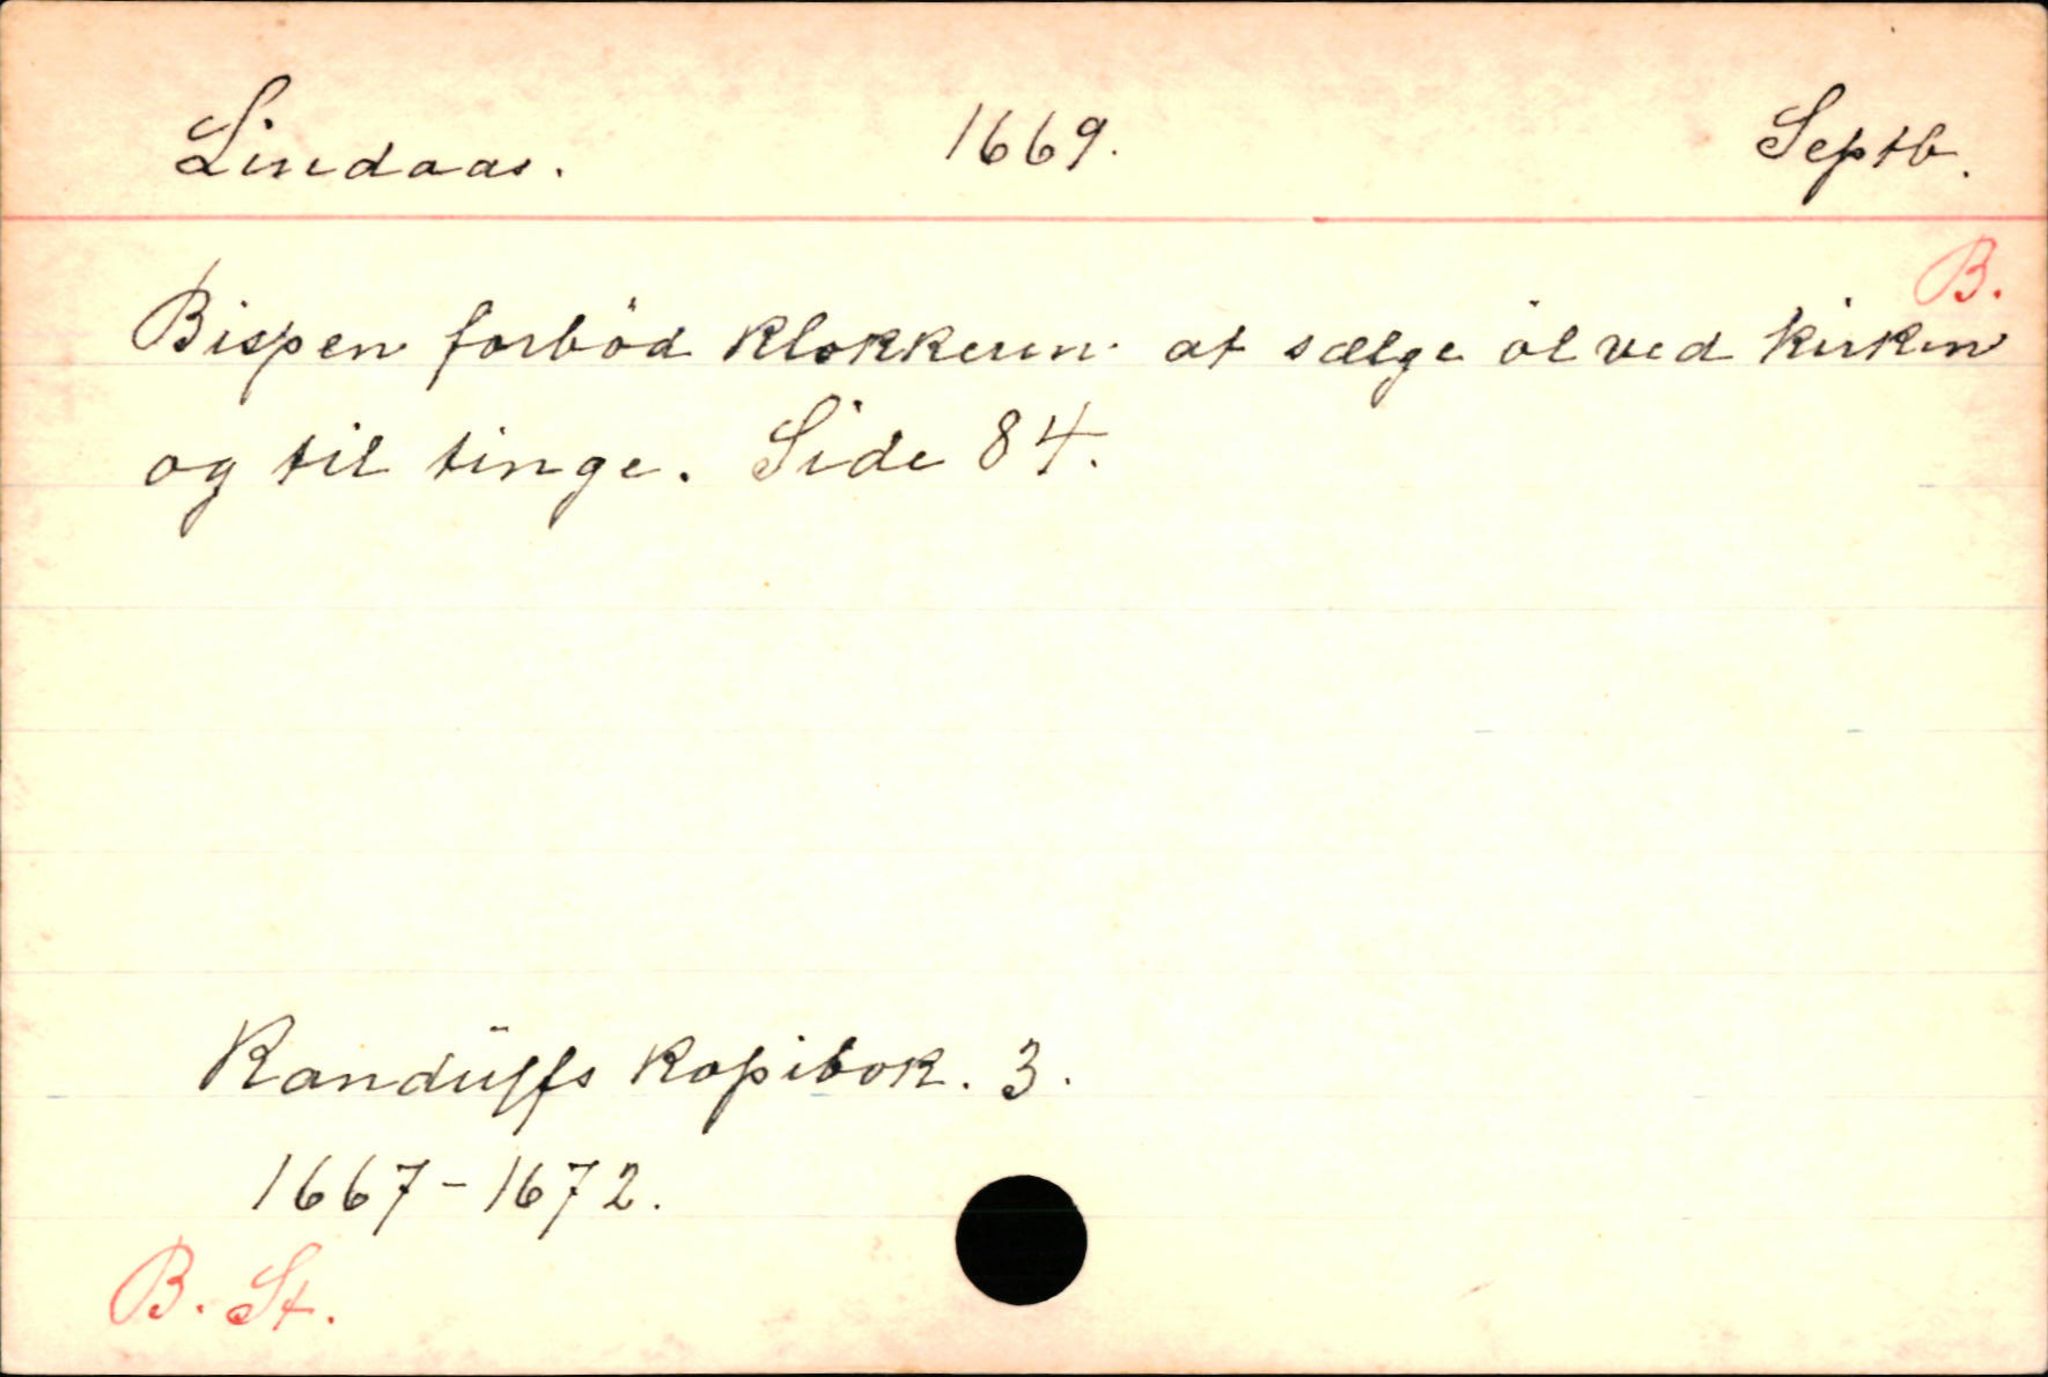 Lindaas. 1669. Septb.
B.
Bispen forbød klokkeren at sælge øl ved kirken
og til tinge. Side 84.
Randüffs kopibok. 3.
1667-1672.
B. St.